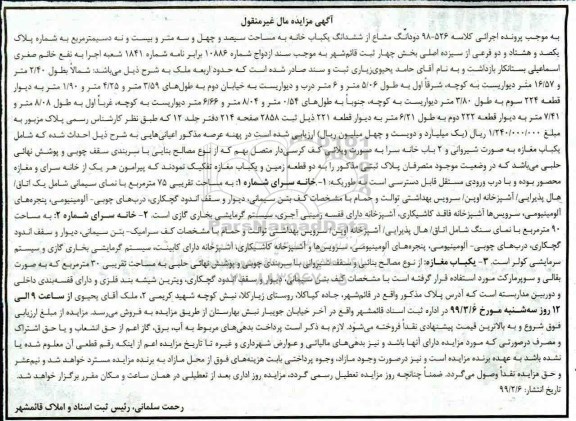 آگهی مزایده مال غیرمنقول
به موجب پرونده اجرائی کلاسه ۹۸-۵۲۶ دودانگ مشاع از ششدانگ یکباب خانه به مساحت سیصد و چهل و سه متر و بیست و نه دسیمترمربع به شماره پلاک
یکصد و هشتاد و دو فرعی از سیزده اصلی بخش چهار ثبت قائم‌شهر به موجب سند ازدواج شماره ۱۰۸۸۶ برابر نامه شماره ۱۸۴۱ شعبه اجرا به نفع خانم صغری
اسماعیلی بستانکار بازداشت و به نام آقای حامد یحیوی‌زیاری ثبت و سند صادر شده است که حدود اربعه ملک به شرح ذیل می‌باشد: شمالاً بطول ۲/۴۰ متر
و ۱۶/۵۷ متر دیواریست به کوچه، شرقاً اول به طول ۵/۰۶ متر و ۶ متر درب و دیواریست به خیابان دوم به طول‌های ۳/۵۹ متر و ۴/۲۵ متر و ۱/۹۰ متر به دیوار
قطعه ۲۲۴ سوم به طول ۳/۸۰ متر دیواریست به کوچه، جنوباً به طول‌های ۰/۵۴ متر و ۸/۰۴ متر و ۶/۶۶ متر دیواریست به کوچه، غرباً اول به طول ۸/۰۸ متر و
۷/۴۱ متر به دیوار قطعه ۲۲۲ دوم به طول ۶/۲۱ متر به دیوار قطعه ۲۲۱ ذیل ثبت ۲۸۵۸ صفحه ۲۱۴ دفتر جلد ۱۲ که طبق نظر کارشناس رسمی پلاک مزبور به
مبلغ ۱/۲۴۰/۰۰۰/۰۰۰ ریال (یک میلیارد و دویست و چهل میلیون ریال) ارزیابی شده است در پهنه عرصه مذکور اعیانی‌هایی به شرح ذیل احداث شده که شامل
یکباب مغازه به صورت شیروانی و ۲ باب خانه سرا به صورت ویلائی کف کرسی‌دار متصل بهم که از نوع مصالح بنایی با سربندی سقف چوبی و پوشش نهائی
حلبی می‌باشد که در وضعیت موجود متصرفان پلاک ثبتی مذکور را به دو قطعه زمین و یکباب مغازه تفکیک نمودند که پیرامون هر یک از خانه سرای و مغازه
محصور بوده و با درب ورودی مستقل قابل دسترسی است به طوریکه: ۱- خانه سرای شماره ۱: به مساحت تقریبی ۷۵ مترمربع با نمای سیمانی شامل یک اتاق/
هال پذیرایی/ آشپزخانه اوپن/ سرویس بهداشتی توالت و حمام با مشخصات کف بتن سیمانی، دیوار و سقف اندود گچکاری، درب‌های چوبی- آلومینیومی، پنجره‌های
آلومینیومی، سرویس‌ها آشپزخانه فاقد کاشیکاری، آشپزخانه دارای قفسه زمینی آجری، سیستم گرمایشی بخاری گازی است. ۲- خانه سرای شماره ۲: به مساحت
۹۰ مترمربع با نمای سنگ شامل اتاق/ هال پذیرایی/ آشپزخانه اوپن/ سرویس بهداشتی توالت و حمام با مشخصات کف سرامیک- بتن سیمانی، دیوار و سقف اندود
گچکاری، درب‌های چوبی- آلومینیومی، پنجره‌های آلومینیومی، سرویس‌ها و آشپزخانه کاشیکاری، آشپزخانه دارای کابینت، سیستم گرمایشی بخاری گازی و سیستم
سرمایشی کولر است. ۳- یکباب مغازه: از نوع مصالح بنائی و سقف شیروانی با سربندی چوبی و پوشش نهائی حلبی به مساحت تقریبی ۳۰ مترمربع که به صورت
بقالی و سوپرمارکت مورد استفاده قرار گرفته است با مشخصات کف بتن سیمانی، دیوار و سقف اندود گچکاری، ویترین شیشه بند فلزی و دارای قفسه‌بندی داخلی
و دوربین مداربسته است که آدرس پلاک مذکور واقع در قائم‌شهر، جاده کیاکلا، روستای زیارکلا، نبش کوچه شهید کریمی ۲، ملک آقای یحیوی از ساعت ۹ الی
۱۲ روز سه‌شنبه مورخ ۹۹/۳/۶ در اداره ثبت اسناد قائم‌شهر واقع در آخر خیابان جویبار نبش بهارستان از طریق مزایده به فروش می‌رسد. مزایده از مبلغ ارزیابی
فوق شروع و به بالاترین قیمت پیشنهادی نقداً فروخته می‌شود. لازم به ذکر است پرداخت بدهی‌های مربوط به آب، برق، گاز اعم از حق انشعاب و یا حق اشتراک
و مصرف درصورتی که مورد مزایده دارای آنها باشد و نیز بدهی‌های مالیاتی و عوارض شهرداری و غیره تا تاریخ مزایده اعم از اینکه رقم قطعی آن معلوم شده یا
نشده باشد به عهده برنده مزایده است و نیز درصورت وجود مازاد، وجوه پرداختی بابت هزینه‌های فوق از محل مازاد به برنده مزایده مسترد خواهد شد و نیم‌عشر
و حق مزایده نقداً وصول می‌گردد. ضمناً چنانچه روز مزایده تعطیل رسمی گردد، مزایده روز اداری بعد از تعطیلی در همان ساعت و مکان مقرر برگزار خواهد شد.
تاریخ انتشار: ۹۹/۲/۶
رحمت سلمانی، رئیس ثبت اسناد و املاک قائمشهر